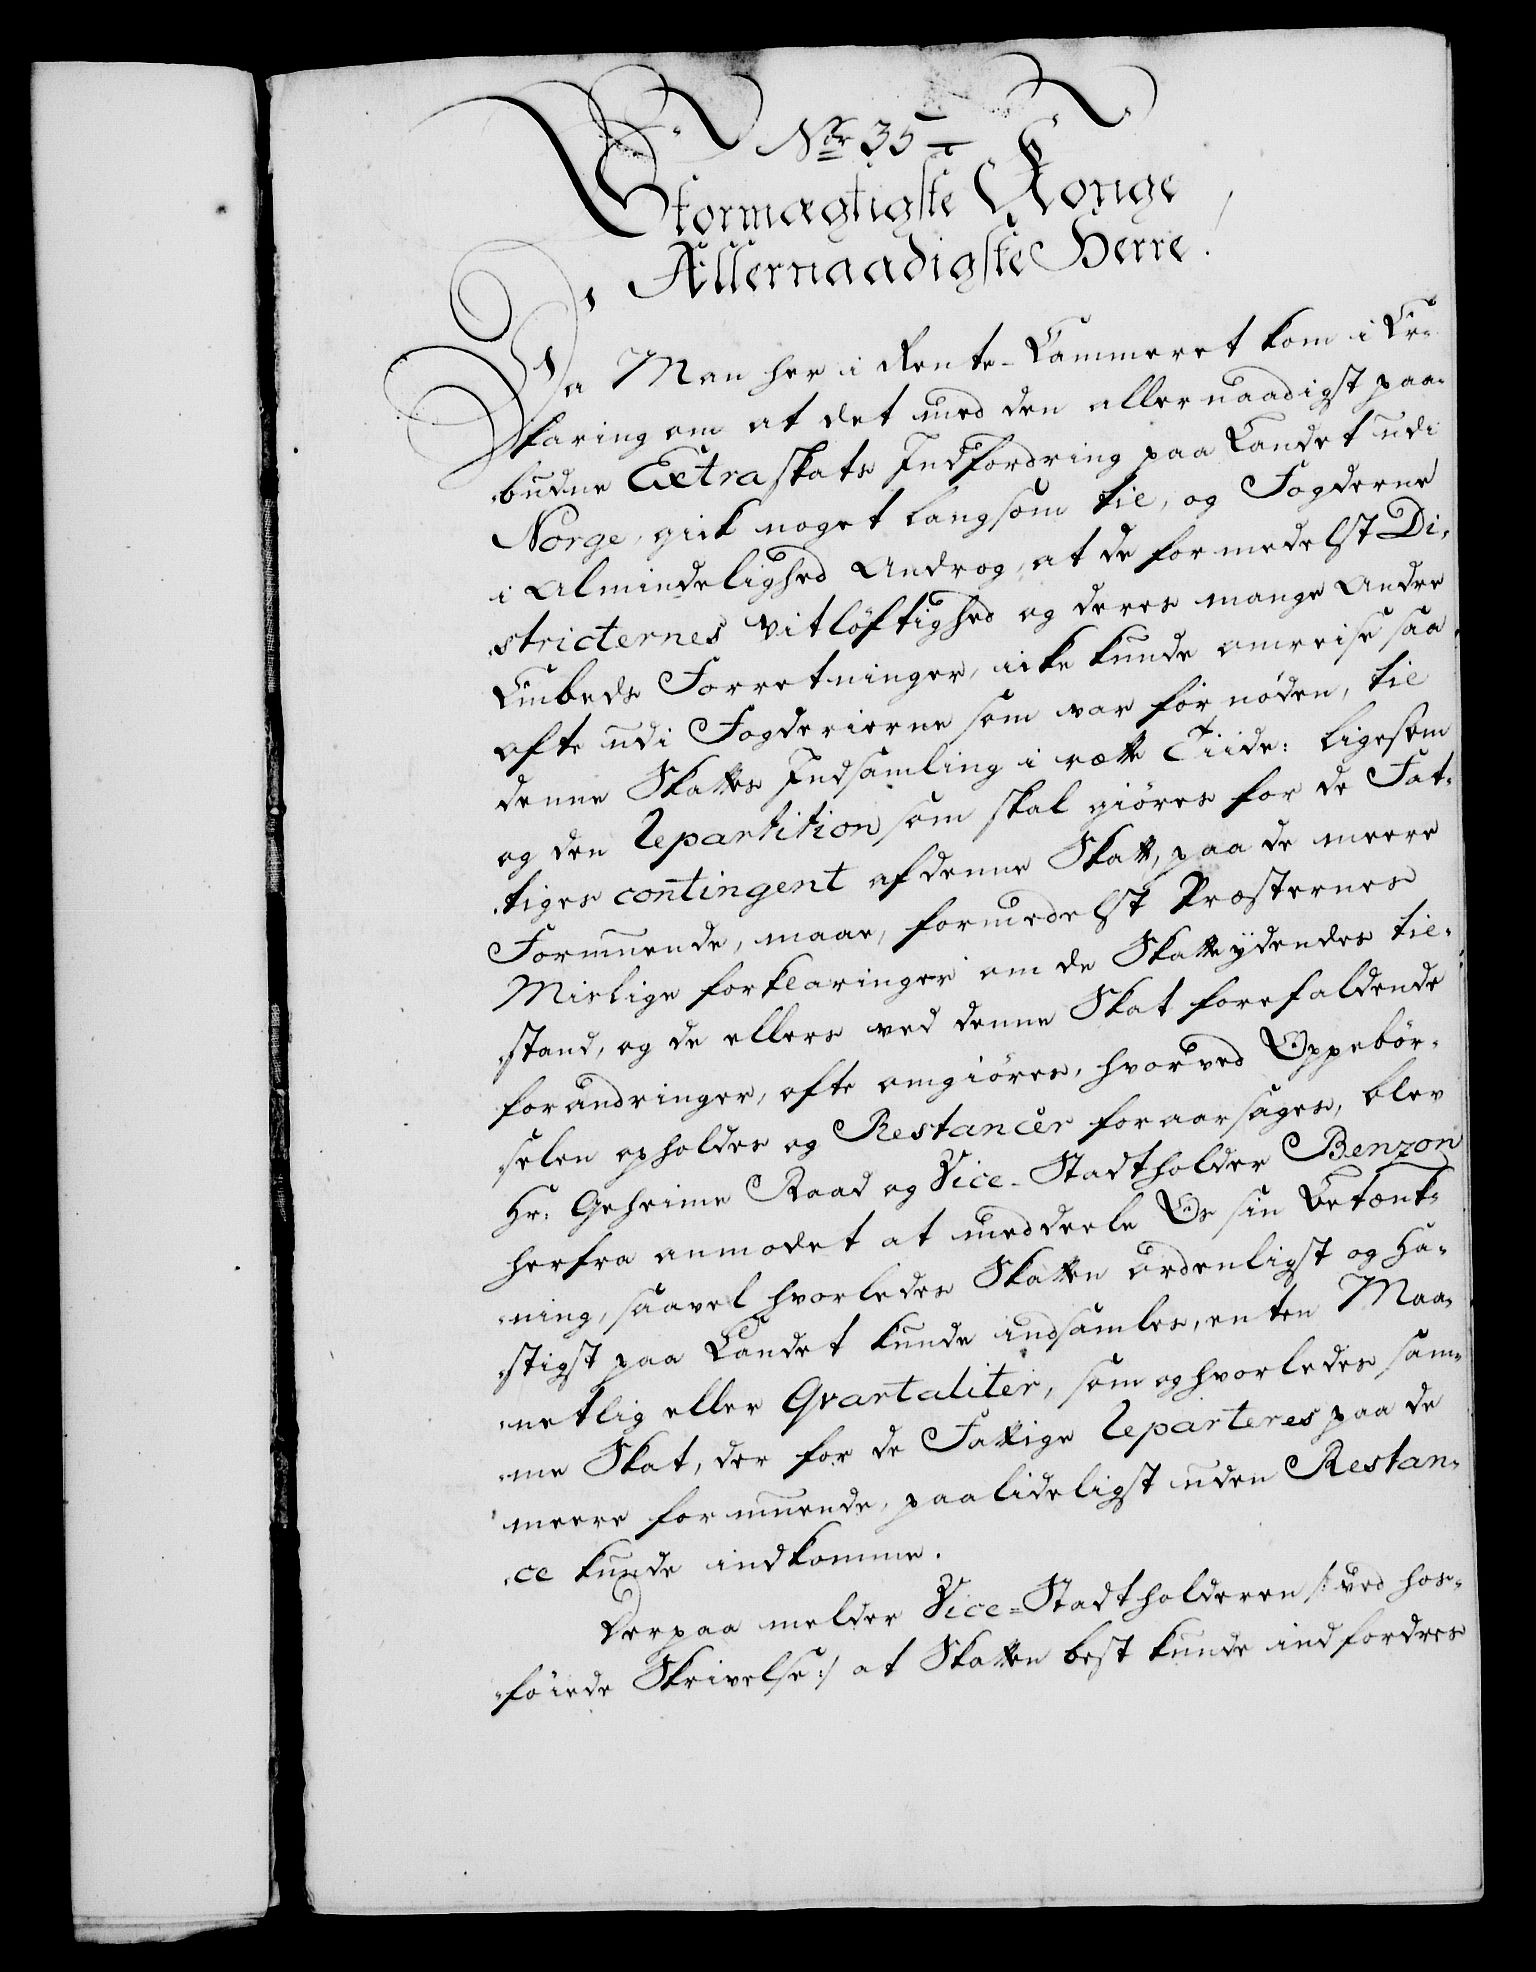 No 35
Stormægtigste Konge
Allernaadigste Herre!
Da Man her i Rente-Cammeret kom i Er-
faring om at det med den allernaadigst paa-
budne Extraskats Indfordring paa Landet udi
Norge, gik noget langsom til, og Fogderne
i Almindelighed Androg, at de formedelst Di-
stricternes Vitløftighed og deres mange Andre
Embeds Forretninger, icke kunde omreise saa
ofte udi Fogderierne som var fornøden, til
denne Skattes Indsamling i rætte Tiide: ligesom
og den Repartition som skal giøres for de Fat-
tiges contingent af denne Skatt, paa de meere
Formuende, maae, formedelst Præsternes
Mislige forklaringer om de Skatteydendes til-
stand, og de ellers ved denne Skat forefaldende
forandringer, ofte omgiøres, hvorved Oppebør-
selen opholdes og Restancer foraarsages, blev
Hr: Geheime Raad og Vice-Stadtholder Benzon
herfra anmodet at meddeele Os sin Betænk-
ning, saavel hvorledes Skatten ordenligst og Ha-
stigst paa Landet kunde indsamles, enten Maa-
netlig eller Qvartaliter, som og hvorledes sam-
me Skat, der for de Fattige reparteres paa de
meere formuende, paalideligst uden Restan-
ce kunde indkomme.
Derpaa melder Vice-Stadtholderen /: ved hos-
føiede Skrivelse :/ at Skatten best kunde indfordres